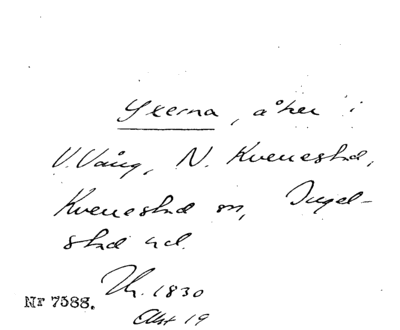 Yxerna, åker i
V. Vång, N. Kvenestad,
Kvenestad sn, Ingel-
stad hd.
Th. 1830
Akt 19
Nr 7588.